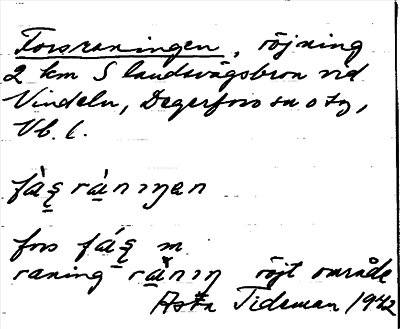 Forsraningen, röjning
2 km S landsvägsbron vid
Vindeln, Degerfors sn o tg,
Vb. l.
fàs̱ rà̱nıŋən
fors fás̱ m
raning rànıŋ röjt område
Asta Tideman 1942